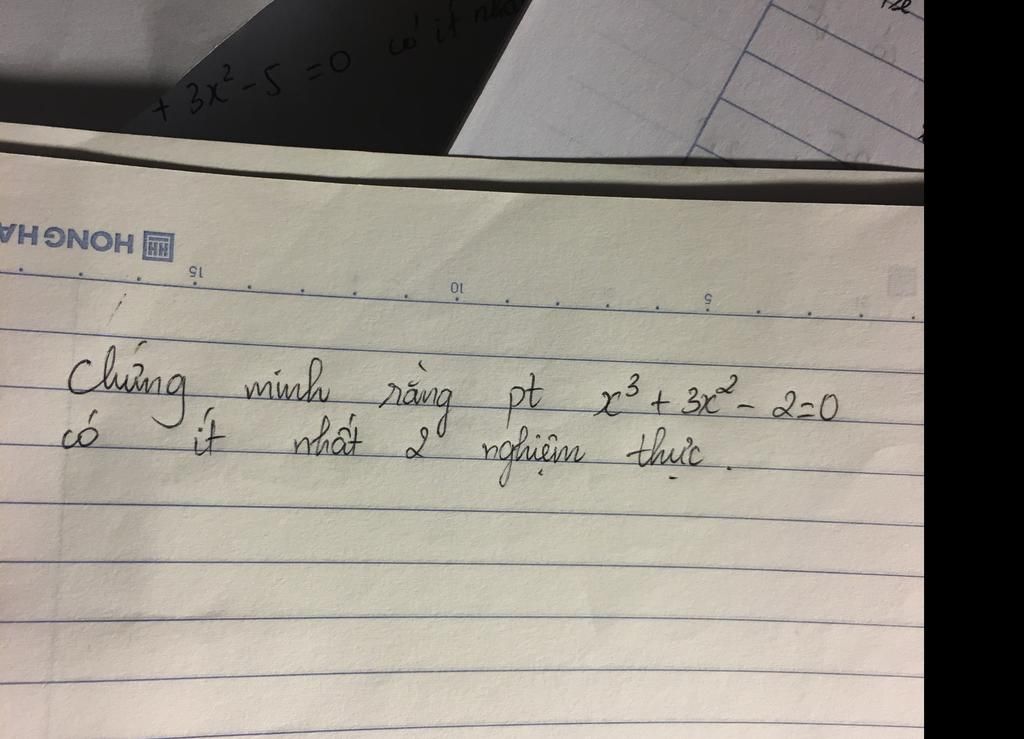 + 3x² - 5 = 0 có ít
HONG HA
15 10 5
Chứng minh rằng pt x³ + 3x² - 2 = 0
có ít nhất 2 nghiệm thực.